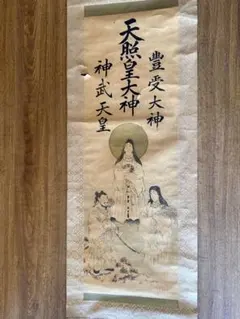 豊受大神
天照皇大神
神武天皇